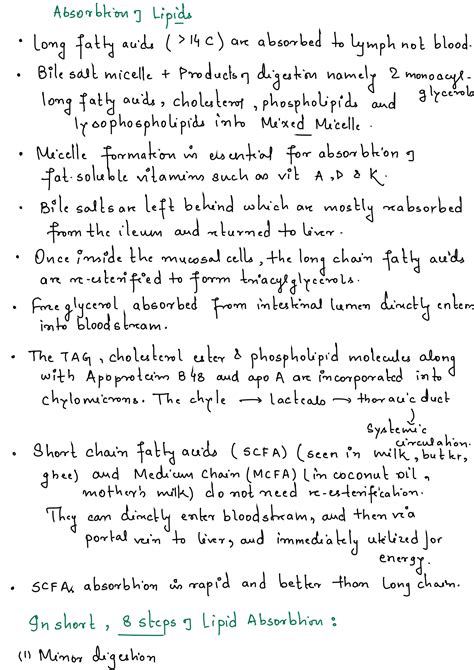 Absorbtion of Lipids
• Long fatty acids ( >14 C) are absorbed to lymph not blood.
• Bile salt micelle + Products of digestion namely 2 monoacyl-
glycerols
long fatty acids, cholesterol, phospholipids and
lysophospholipids into Mixed Micelle.
• Micelle formation is essential for absorbtion of
fat-soluble vitamins such as vit A, D & K.
• Bile salts are left behind which are mostly reabsorbed
from the ileum and returned to liver.
• Once inside the mucosal cells, the long chain fatty acids
are re-esterified to form triacylglycerols.
• Free glycerol absorbed from intestinal lumen directly enters
into bloodstream.
• The TAG, cholesterol ester & phospholipid molecules along
with Apoprotein B48 and apo A are incorporated into
chylomicrons. The chyle → lacteals → thoracic duct
↓
Systemic
circulation.
• Short chain fatty acids (SCFA) (seen in milk, butter,
ghee) and Medium Chain (MCFA) (in coconut oil,
mother's milk) do not need re-esterification.
They can directly enter bloodstream, and then via
portal vein to liver, and immediately utilized for
energy.
• SCFAs absorbtion is rapid and better than Long chain.
In short, 8 steps of Lipid Absorbtion :
(1) Minor digestion